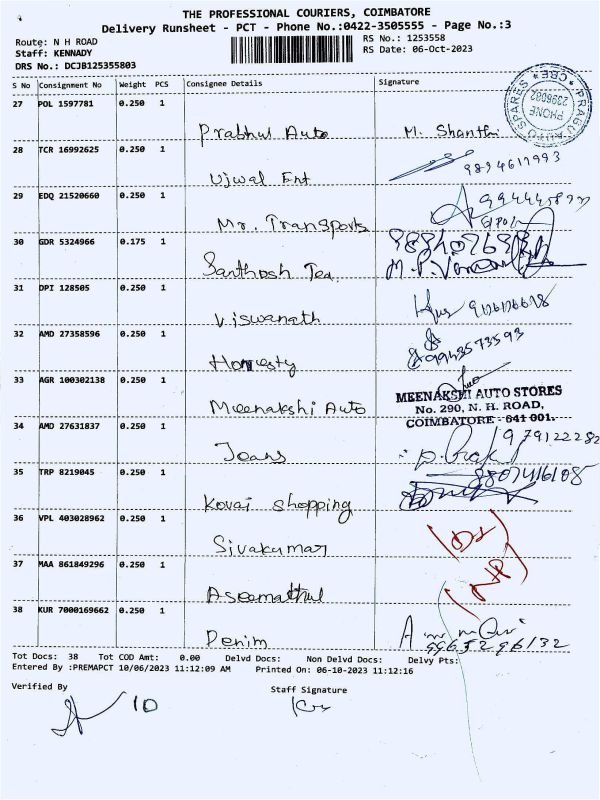 THE PROFESSIONAL COURIERS, COIMBATORE
Delivery Runsheet - PCT - Phone No.:0422-3505555 - Page No.:3
Route: N H ROAD
RS No.: 1253558
Staff: KENNADY
RS Date: 06-Oct-2023
DRS No.: DCJB125355803
S No Consignment No Weight PCS Consignee Details Signature
PRABU AUTO SPARES * CBE *
PHONE
2396082
27 POL 1597781 0.250 1
Prabhul Auto M. Shanthi
28 TCR 16992625 0.250 1
Ujwal Ent 9894617993
29 EDQ 21520660 0.250 1
Mr. Transports
30 GDR 5324966 0.175 1
Santhosh Tex
31 DPI 128505 0.250 1
Viswanath
32 AMD 27358596 0.250 1
Honesty 9943573593
33 AGR 100302138 0.250 1
Meenakshi Auto
MEENAKSHI AUTO STORES
No. 290, N. H. ROAD,
COIMBATORE - 641 001.
34 AMD 27631837 0.250 1
Jeans 979122282
35 TRP 8219045 0.250 1
Kovai Shopping 9807416108
36 VPL 403028962 0.250 1
Sivakumar
37 MAA 861849296 0.250 1
38 KUR 7000169662 0.250 1
Denim 9965296132
Tot Docs: 38 Tot COD Amt: 0.00 Delvd Docs: Non Delvd Docs: Delvy Pts:
Entered By :PREMAPCT 10/06/2023 11:12:09 AM Printed On: 06-10-2023 11:12:16
Verified By
Staff Signature
10